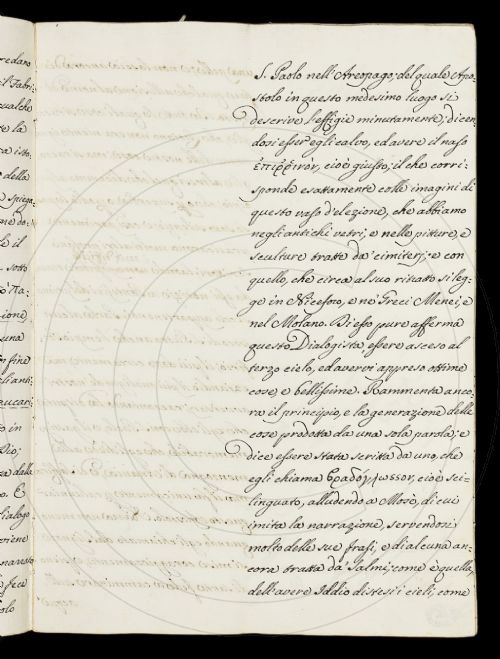 S. Paolo nell'Areopago; del quale Apo-
stolo in questo medesimo luogo si
descrive l'effigie minutamente; dicen-
dosi esser egli calvo, ed avere il naso
ἐπίῤῥινον, cioè giusto; il che corri-
sponde esattamente colle imagini di
questo vaso d'elezione, che abbiamo
negli antichi vetri, e nelle pitture, e
sculture tratte da' cimiterj; e con
quello, che circa al suo ritratto si leg-
ge in Niceforo, e ne' Greci Menei, e
nel Molano. Di esso pure afferma
questo Dialogista, essere asceso al
terzo cielo, ed avervi appreso ottime
cose, e bellissime. Rammenta anco-
ra il principio, e la generazione delle
cose prodotta da una sola parola; e
dice essere stata scritta da uno, che
egli chiama βραδύγλωσσον, cioè sci-
linguato, alludendo a Mosè, di cui
imita la narrazione, servendosi
molto delle sue frasi, e di alcuna an-
cora tratta da' Salmi; come è quella
dell'avere Iddio distesi i cieli, come
redano
qualche
te la
della
spiega-
sotto
una
fine
in
dalle
E
dialogo
fece